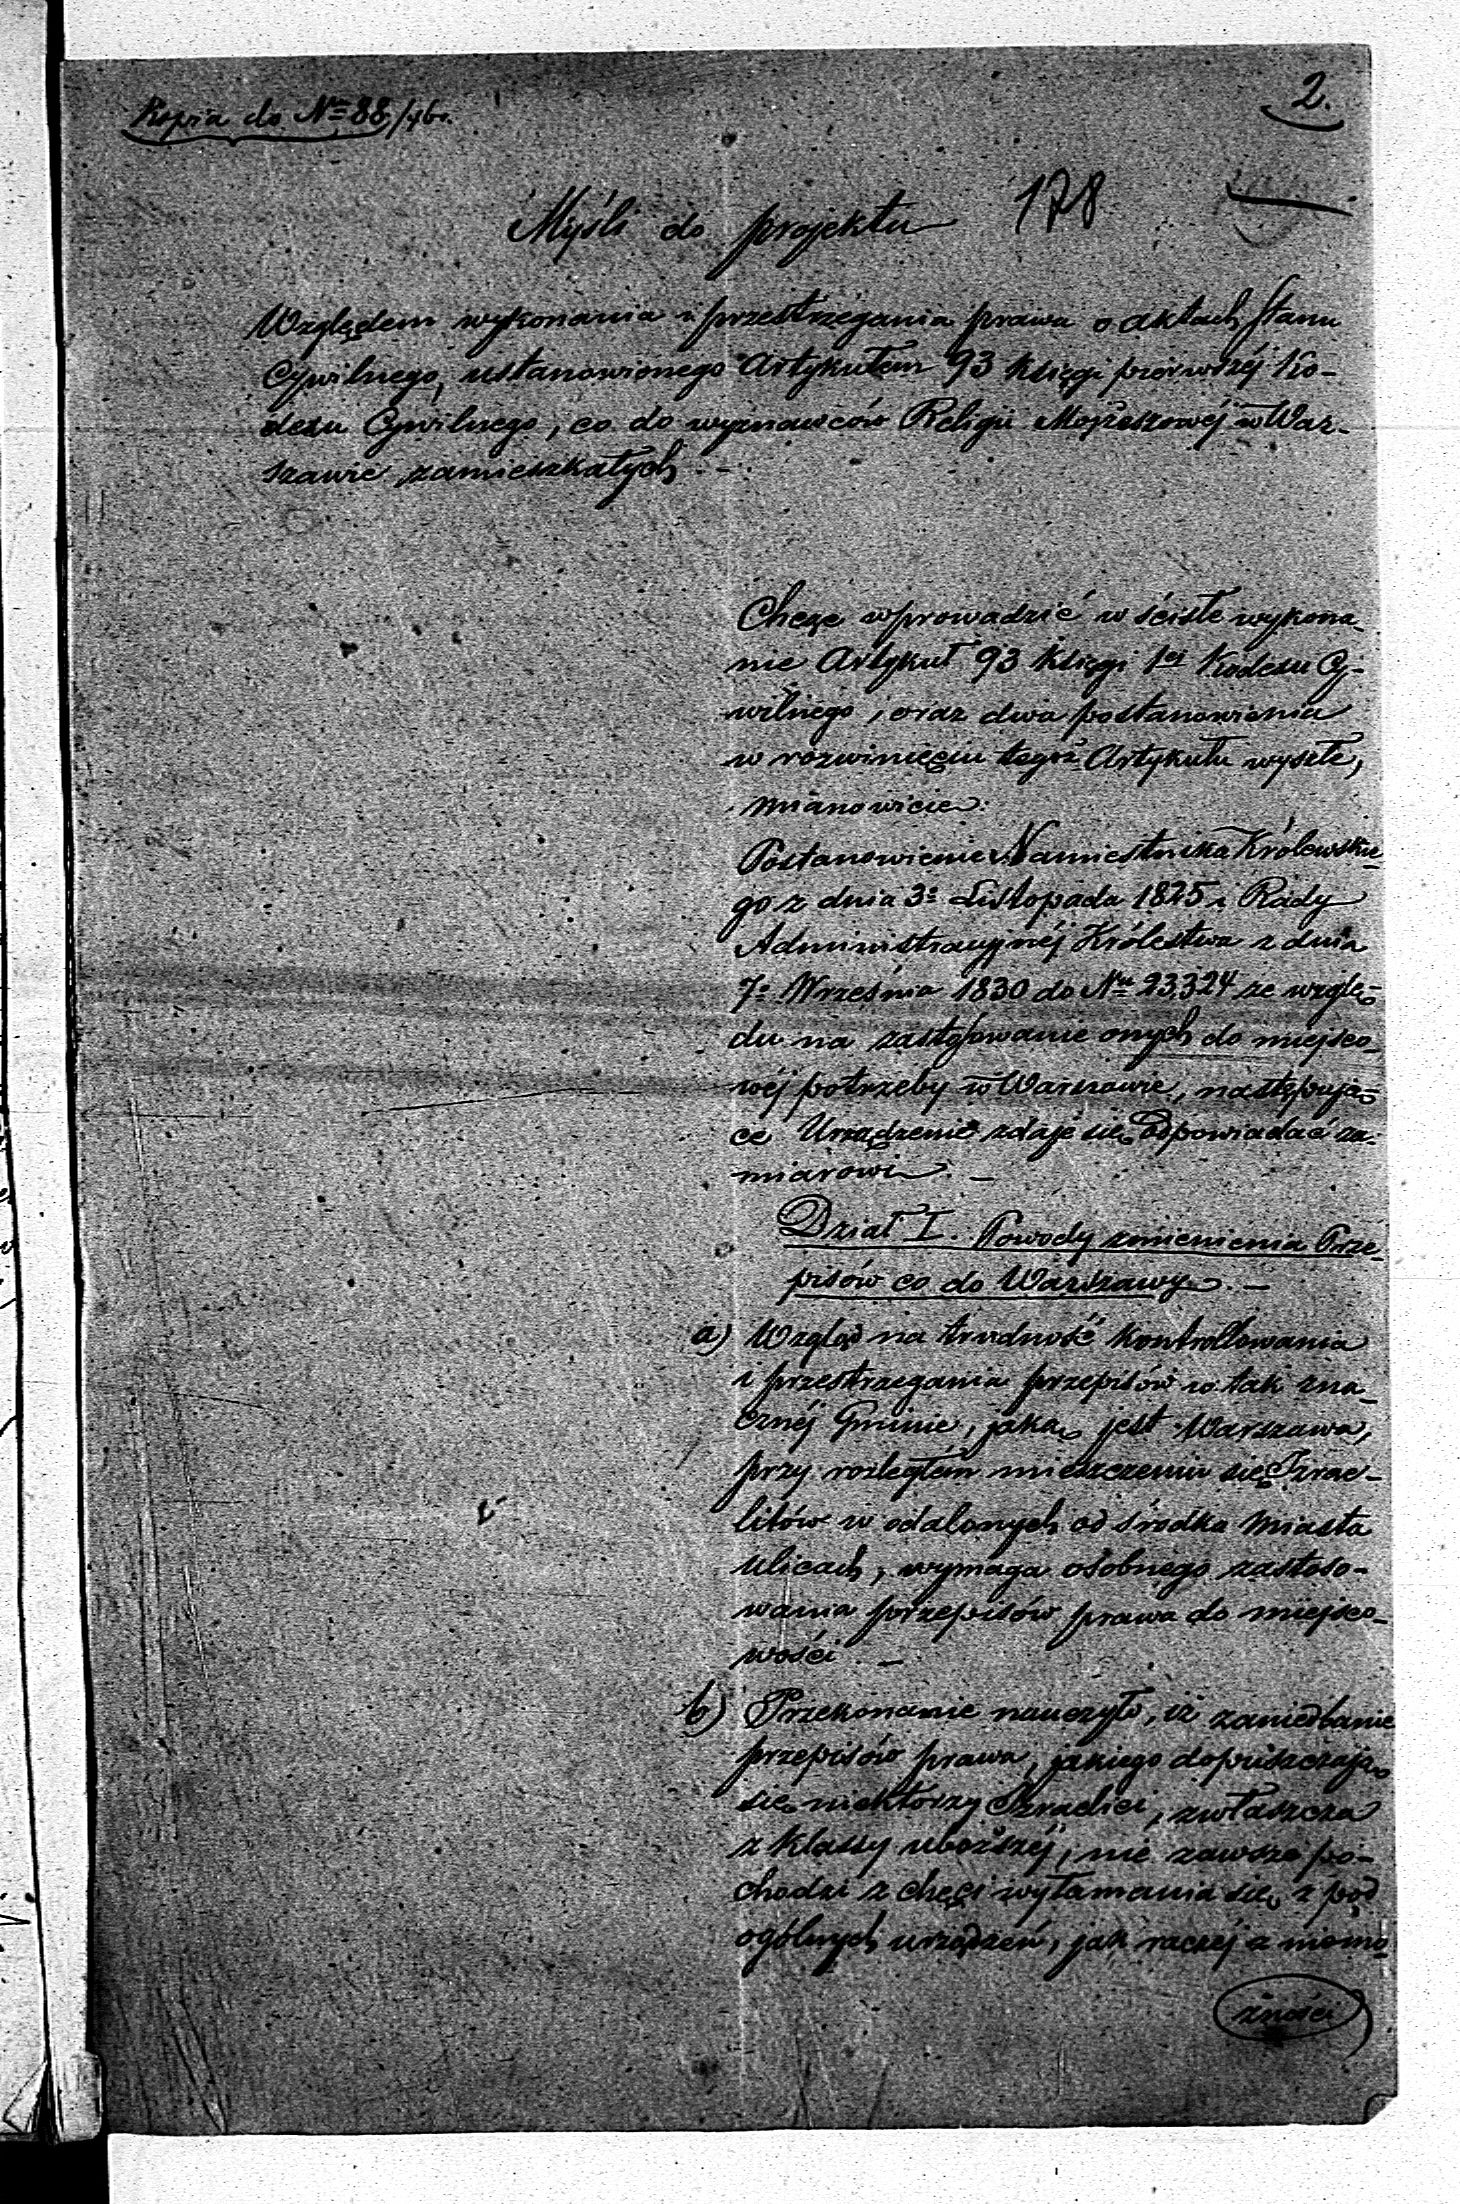 Kopia do Nro 88/46.
2.
178
Myśli do projektu
Względem wykonania i przestrzegania prawa o aktach Stanu
Cywilnego, ustanowionego Artykułem 93 Księgi pierwszéj Ko-
dexu Cywilnego, co do wyznawców Religii Mojżeszowéj w War-
szawie zamieszkałych. –
Chcąc wprowadzić w ścisłe wykona-
nie Artykuł 93 Księgi 1ej Kodexu Cy-
wilnego, oraz dwa postanowienia
w rozwinięciu tegoż Artykułu wyszłe,
mianowicie:
Postanowienie Namiestnika Królewskie-
go z dnia 3o Listopada 1825 i Rady
Administracyjnéj Królestwa z dnia
7o Września 1830 do Nru 23,324 ze wzglę-
du na zastosowanie onych do miejsco-
wéj potrzeby w Warszawie, następują-
ce Urządzenie zdaje się odpowiadać za-
miarowi. –
Dział I. Powody zmienienia Prze-
pisów co do Warszawy. –
a) Wzgląd na trudność kontrollowania
i przestrzegania przepisów w tak zna-
cznéj Gminie, jaką jest Warszawa,
przy rozległém mieszczeniu się Izrae-
litów w odalonych od środka miasta
ulicach, wymaga osobnego zastoso-
wania przepisów prawa do miejsco-
wości. –
b) Przekonanie nauczyło, iż zaniedbanie
przepisów prawa, jakiego dopuszczają
się niektórzy Izraelici, zwłaszcza
z klassy uboższéj, nie zawsze po-
chodzi z chęci wyłamania się z pod
ogólnych urządzeń, jak raczéj z niemo-
żności